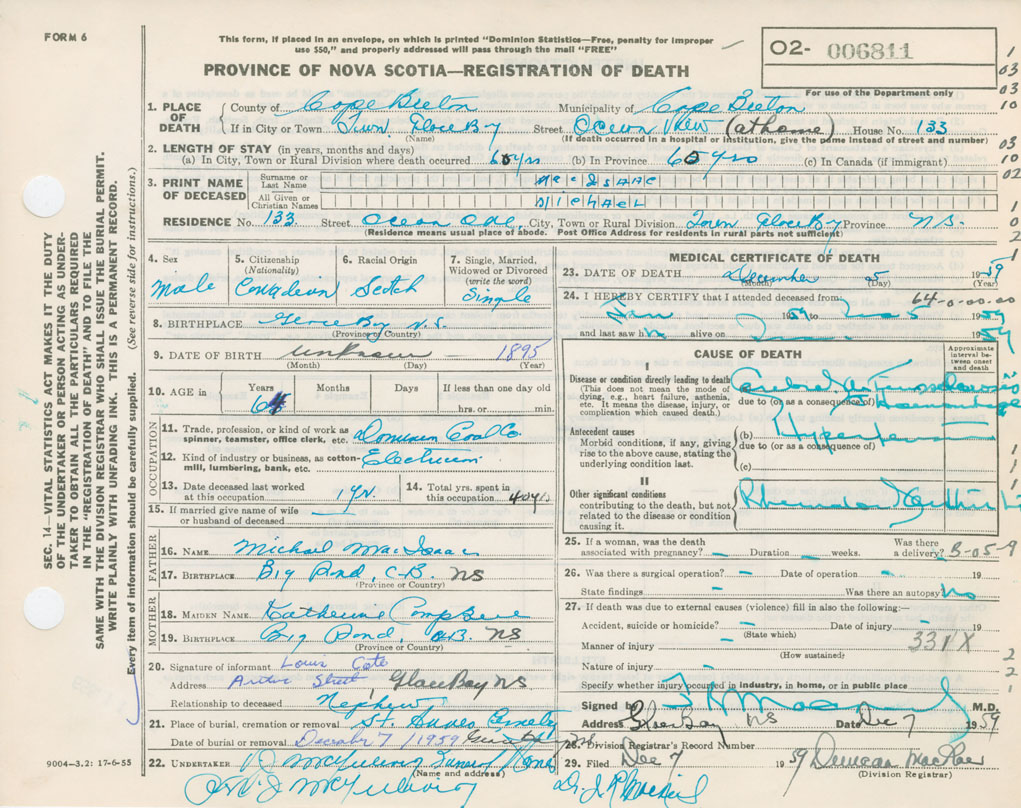 FORM 6
This form, if placed in an envelope, on which is printed "Dominion Statistics—Free, penalty for improper
use $50," and properly addressed will pass through the mail "FREE"
O2- 006811
For use of the Department only
PROVINCE OF NOVA SCOTIA—REGISTRATION OF DEATH
SEC. 14—VITAL STATISTICS ACT MAKES IT THE DUTY
OF THE UNDERTAKER OR PERSON ACTING AS UNDER-
TAKER TO OBTAIN ALL THE PARTICULARS REQUIRED
IN THE "REGISTRATION OF DEATH" AND TO FILE THE
SAME WITH THE DIVISION REGISTRAR WHO SHALL ISSUE THE BURIAL PERMIT.
WRITE PLAINLY WITH UNFADING INK. THIS IS A PERMANENT RECORD.
Every item of information should be carefully supplied. (See reverse side for instructions.)
1. PLACE OF DEATH
County of Cape Breton Municipality of Cape Breton
If in City or Town Town Glace Bay Street Ocean View (at home) House No. 133
(Name) (If death occurred in a hospital or institution, give the name instead of street and number)
2. LENGTH OF STAY (in years, months and days)
(a) In City, Town or Rural Division where death occurred yrs (b) In Province yrs (c) In Canada (if immigrant)
3. PRINT NAME OF DECEASED
Surname or Last Name MacIsaac
All Given or Christian Names Michael
RESIDENCE No. 133 Street Ocean City, Town or Rural Division Town Glace Bay Province N.S.
(Residence means usual place of abode. Post Office Address for residents in rural parts not sufficient)
4. Sex Male
5. Citizenship (Nationality) Canadian
6. Racial Origin Scotch
7. Single, Married, Widowed or Divorced (write the word) Single
8. BIRTHPLACE Glace Bay N.S.
(Province or Country)
9. DATE OF BIRTH unknown — 1895
(Month) (Day) (Year)
10. AGE in Years 64 Months Days If less than one day old
hrs. or min.
OCCUPATION
11. Trade, profession, or kind of work as
spinner, teamster, office clerk, etc. Dominion Coal Co
12. Kind of industry or business, as cotton-
mill, lumbering, bank, etc. Electrician
13. Date deceased last worked
at this occupation 1 yr.
14. Total yrs. spent in
this occupation 40 yrs
15. If married give name of wife
or husband of deceased —
FATHER
16. NAME Michael MacIsaac
17. BIRTHPLACE Big Pond, C.B. NS
(Province or Country)
MOTHER
18. MAIDEN NAME Katherine Campbell
19. BIRTHPLACE Big Pond, C.B. NS
(Province or Country)
20. Signature of informant Louis Cote
Address Street Glace Bay NS
Relationship to deceased Nephew
21. Place of burial, cremation or removal St. Annes Cemetery
Date of burial or removal December 7 / 1959
22. UNDERTAKER
(Name and address)
9004-3.2: 17-6-55
MEDICAL CERTIFICATE OF DEATH
23. DATE OF DEATH December 5 1959
(Month) (Day) (Year)
64-0-00-00
24. I HEREBY CERTIFY that I attended deceased from
Jan 1959 to 5 1959
and last saw h alive on 1959
CAUSE OF DEATH
Approximate interval between onset and death
I
Disease or condition directly leading to death
(This does not mean the mode of
dying, e.g., heart failure, asthenia,
etc. It means the disease, injury, or
complication which caused death.)
due to (or as a consequence of)
Antecedent causes
Morbid conditions, if any, giving
rise to the above cause, stating the
underlying condition last.
(b)
due to (or as a consequence of)
(c)
II
Other significant conditions
contributing to the death, but not
related to the disease or condition
causing it.
25. If a woman, was the death
associated with pregnancy? — Duration — weeks. Was there a delivery? B-05-9
26. Was there a surgical operation? — Date of operation — 19
State findings — Was there an autopsy? No
27. If death was due to external causes (violence) fill in also the following:—
Accident, suicide or homicide? — Date of injury — 19
(State which)
Manner of injury 331X
(How sustained)
Nature of injury —
Specify whether injury occurred in industry, in home, or in public place
Signed by M.D.
Address Glace Bay NS Date Dec 7 1959
28. Division Registrar's Record Number
29. Filed Dec 7 1959 Duncan MacRae
(Division Registrar)